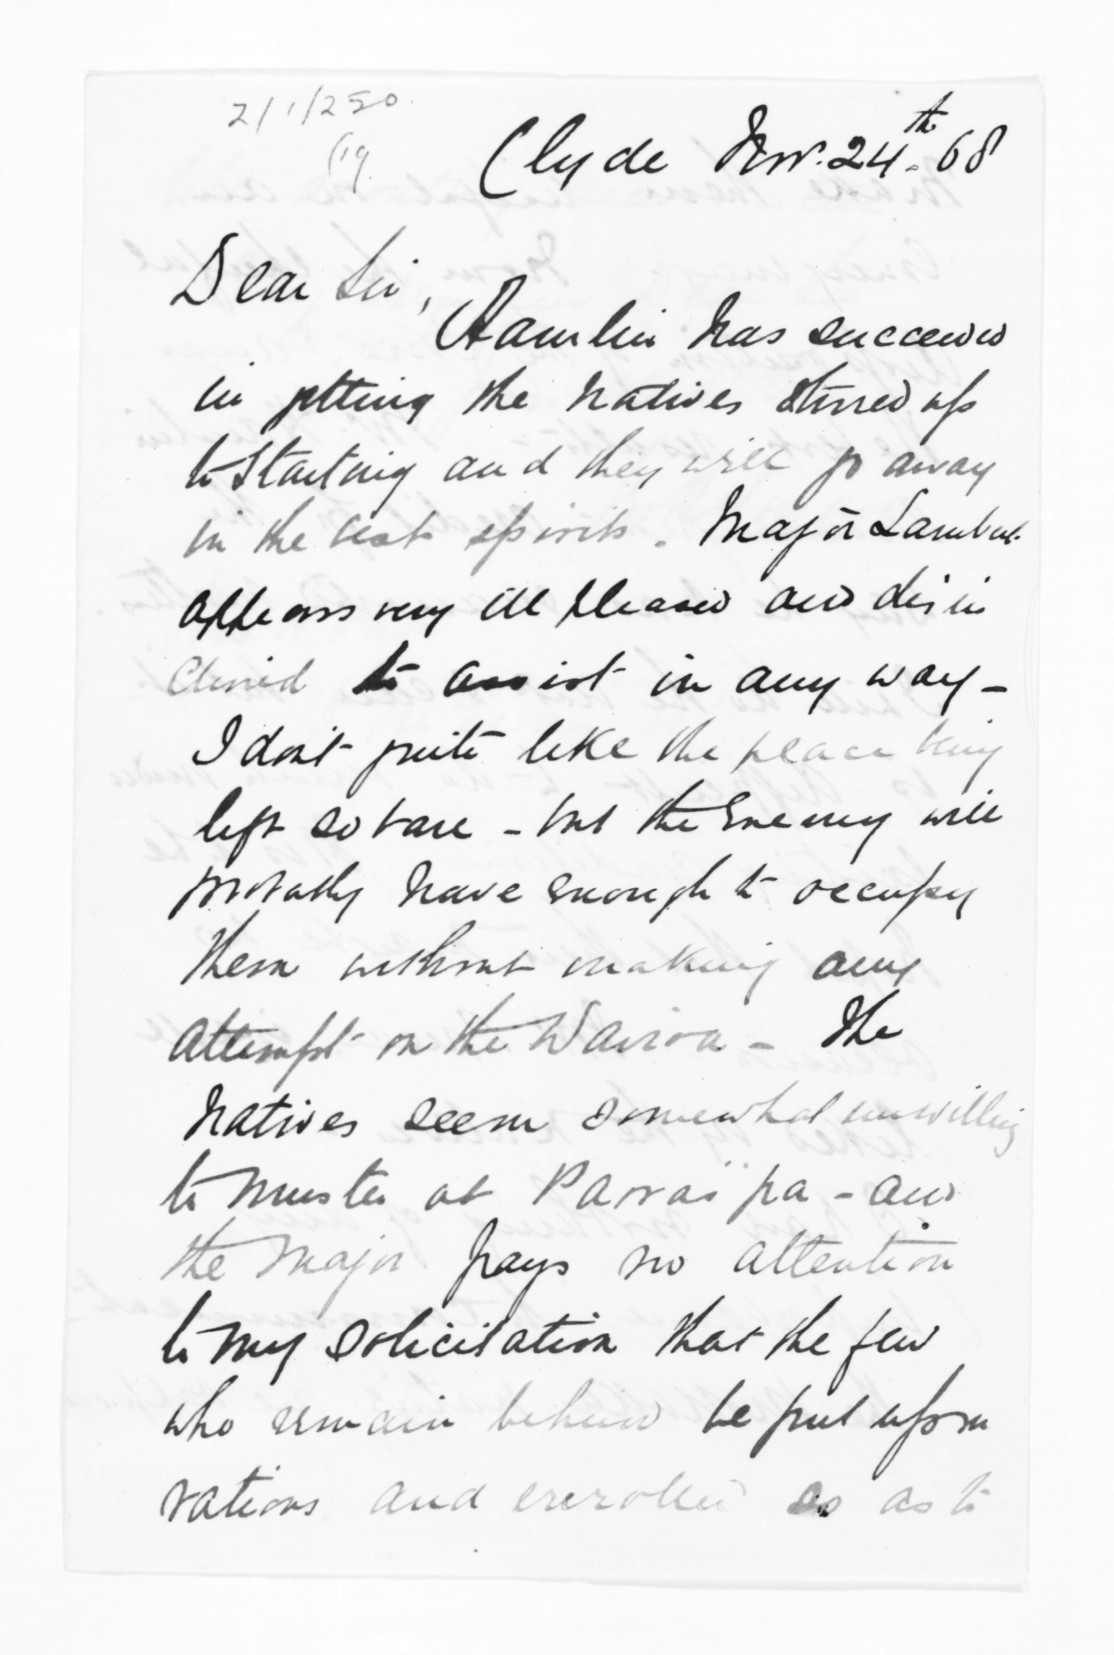 2/1/250.
(19.
Clyde Nov. 24th. 68
Dear Sir,
Hamlin has succeeded
in getting the natives stirred up
to starting and they will go away
in the best spirits. Major Lambert
appears very ill pleased and disin
clined to assist in any way -
I don't quite like the place being
left so bare - but the Enemy will
probably have enough to occupy
them without making any
attempt on the Wairoa - The
natives seem somewhat unwilling
to muster at pa - and
the Major pays no attention
to my solicitation that the few
who remain behind be put upon
rations and enrolled so as to